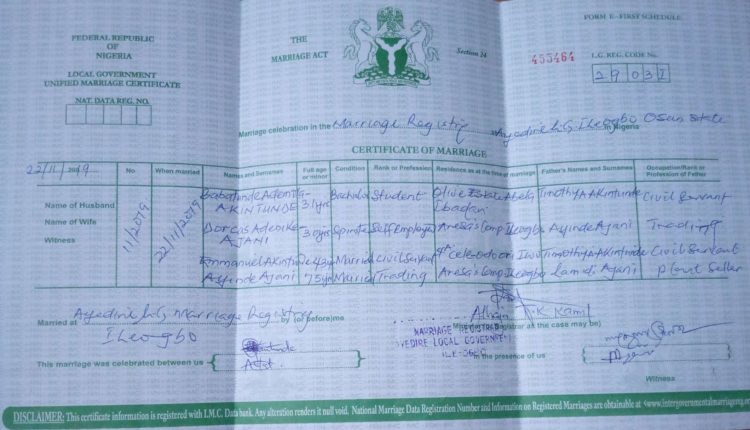 FORM E - FIRST SCHEDULE
FEDERAL REPUBLIC
OF
NIGERIA
LOCAL GOVERNMENT
UNIFIED MARRIAGE CERTIFICATE
NAT. DATA REG. NO.
THE
MARRIAGE ACT
Section 24
455464
L.G. REG. CODE No.
29031
Marriage celebration in the Marriage Registry Ayedire L.G, Ileogbo Osun State in Nigeria
CERTIFICATE OF MARRIAGE
22/11/2019 No When married Names and Surnames Full age or minor Condition Rank or Profession Residence as at the time of marriage Father's Names and Surnames Occupation/Rank or Profession of Father
Name of Husband 11/2019 22/11/2019 Babatunde AKINTUNDE 31yrs Bachelor Student Olive Estate Ibadan Timothy A. Akintunde Civil Servant
Name of Wife Dorcas Adeoike AJANI 30yrs Spinster Self Employed Aresa's Comp Ileogbo Ayinde Ajani Trading
Witness Emmanuel Akintunde 43yr Married Civil Servant Celebration Timothy A. Akintunde Civil Servant
Ayinde Ajani 75yr Married Trading Aresa's Comp Ileogbo Lamidi Ajani Seller
Married at Ayedire L.G Marriage Registry by (or before) me Alhaji T.K. Kamil
Ileogbo
Minister (Registrar as the case may be)
MARRIAGE REGISTRY
AYEDIRE LOCAL GOVERNMENT
ILE-OGBO
This marriage was celebrated between us
in the presence of us
Witness
DISCLAIMER: This certificate information is registered with I.M.C. Data bank. Any alteration renders it null void. National Marriage Data Registration Number and Information on Registered Marriages are obtainable at